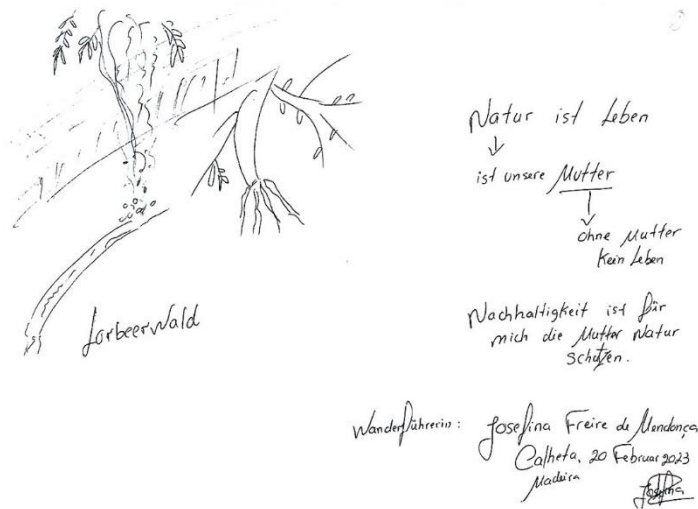 Lorbeerwald
Natur ist Leben
↓
ist unsere Mutter
↓
ohne Mutter
kein Leben
Nachhaltigkeit ist für
mich die Mutter Natur
schützen.
Wanderführerin: Josefina Freire de Mendonça
Calheta, 20 Februar 2023
Madeira
Josefina